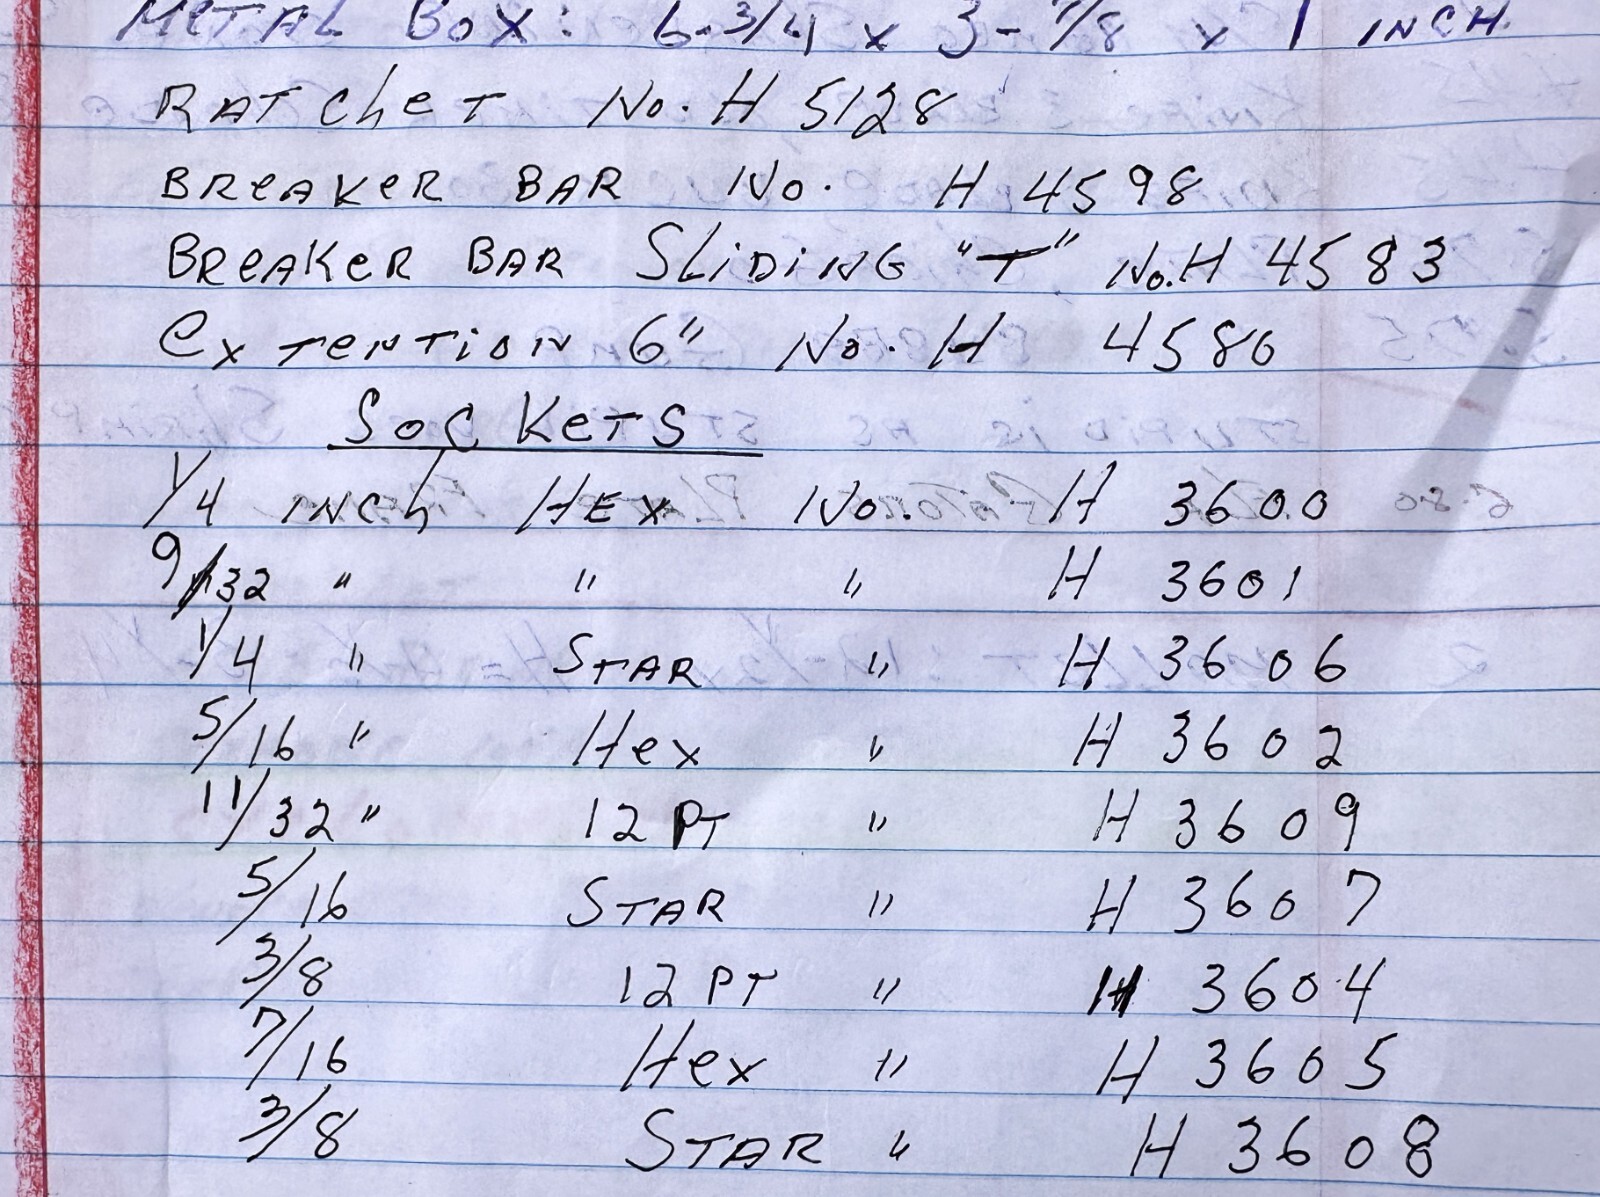 METAL BOX: 6-3/4 x 3-7/8 x 1 INCH.
RATCheT No. H 5128
BReAKeR BAR No. H 4598
BReAKeR BAR SLiDiNG "T" No. H 4583
exTenTion 6" No. H 4586
SocKeTS
1/4 INCh HEX No. H 3600
9/32 " " " H 3601
1/4 " STAR " H 3606
5/16 " Hex " H 3602
11/32 " 12 PT " H 3609
5/16 STAR " H 3607
3/8 12 PT " H 3604
7/16 Hex " H 3605
3/8 STAR " H 3608